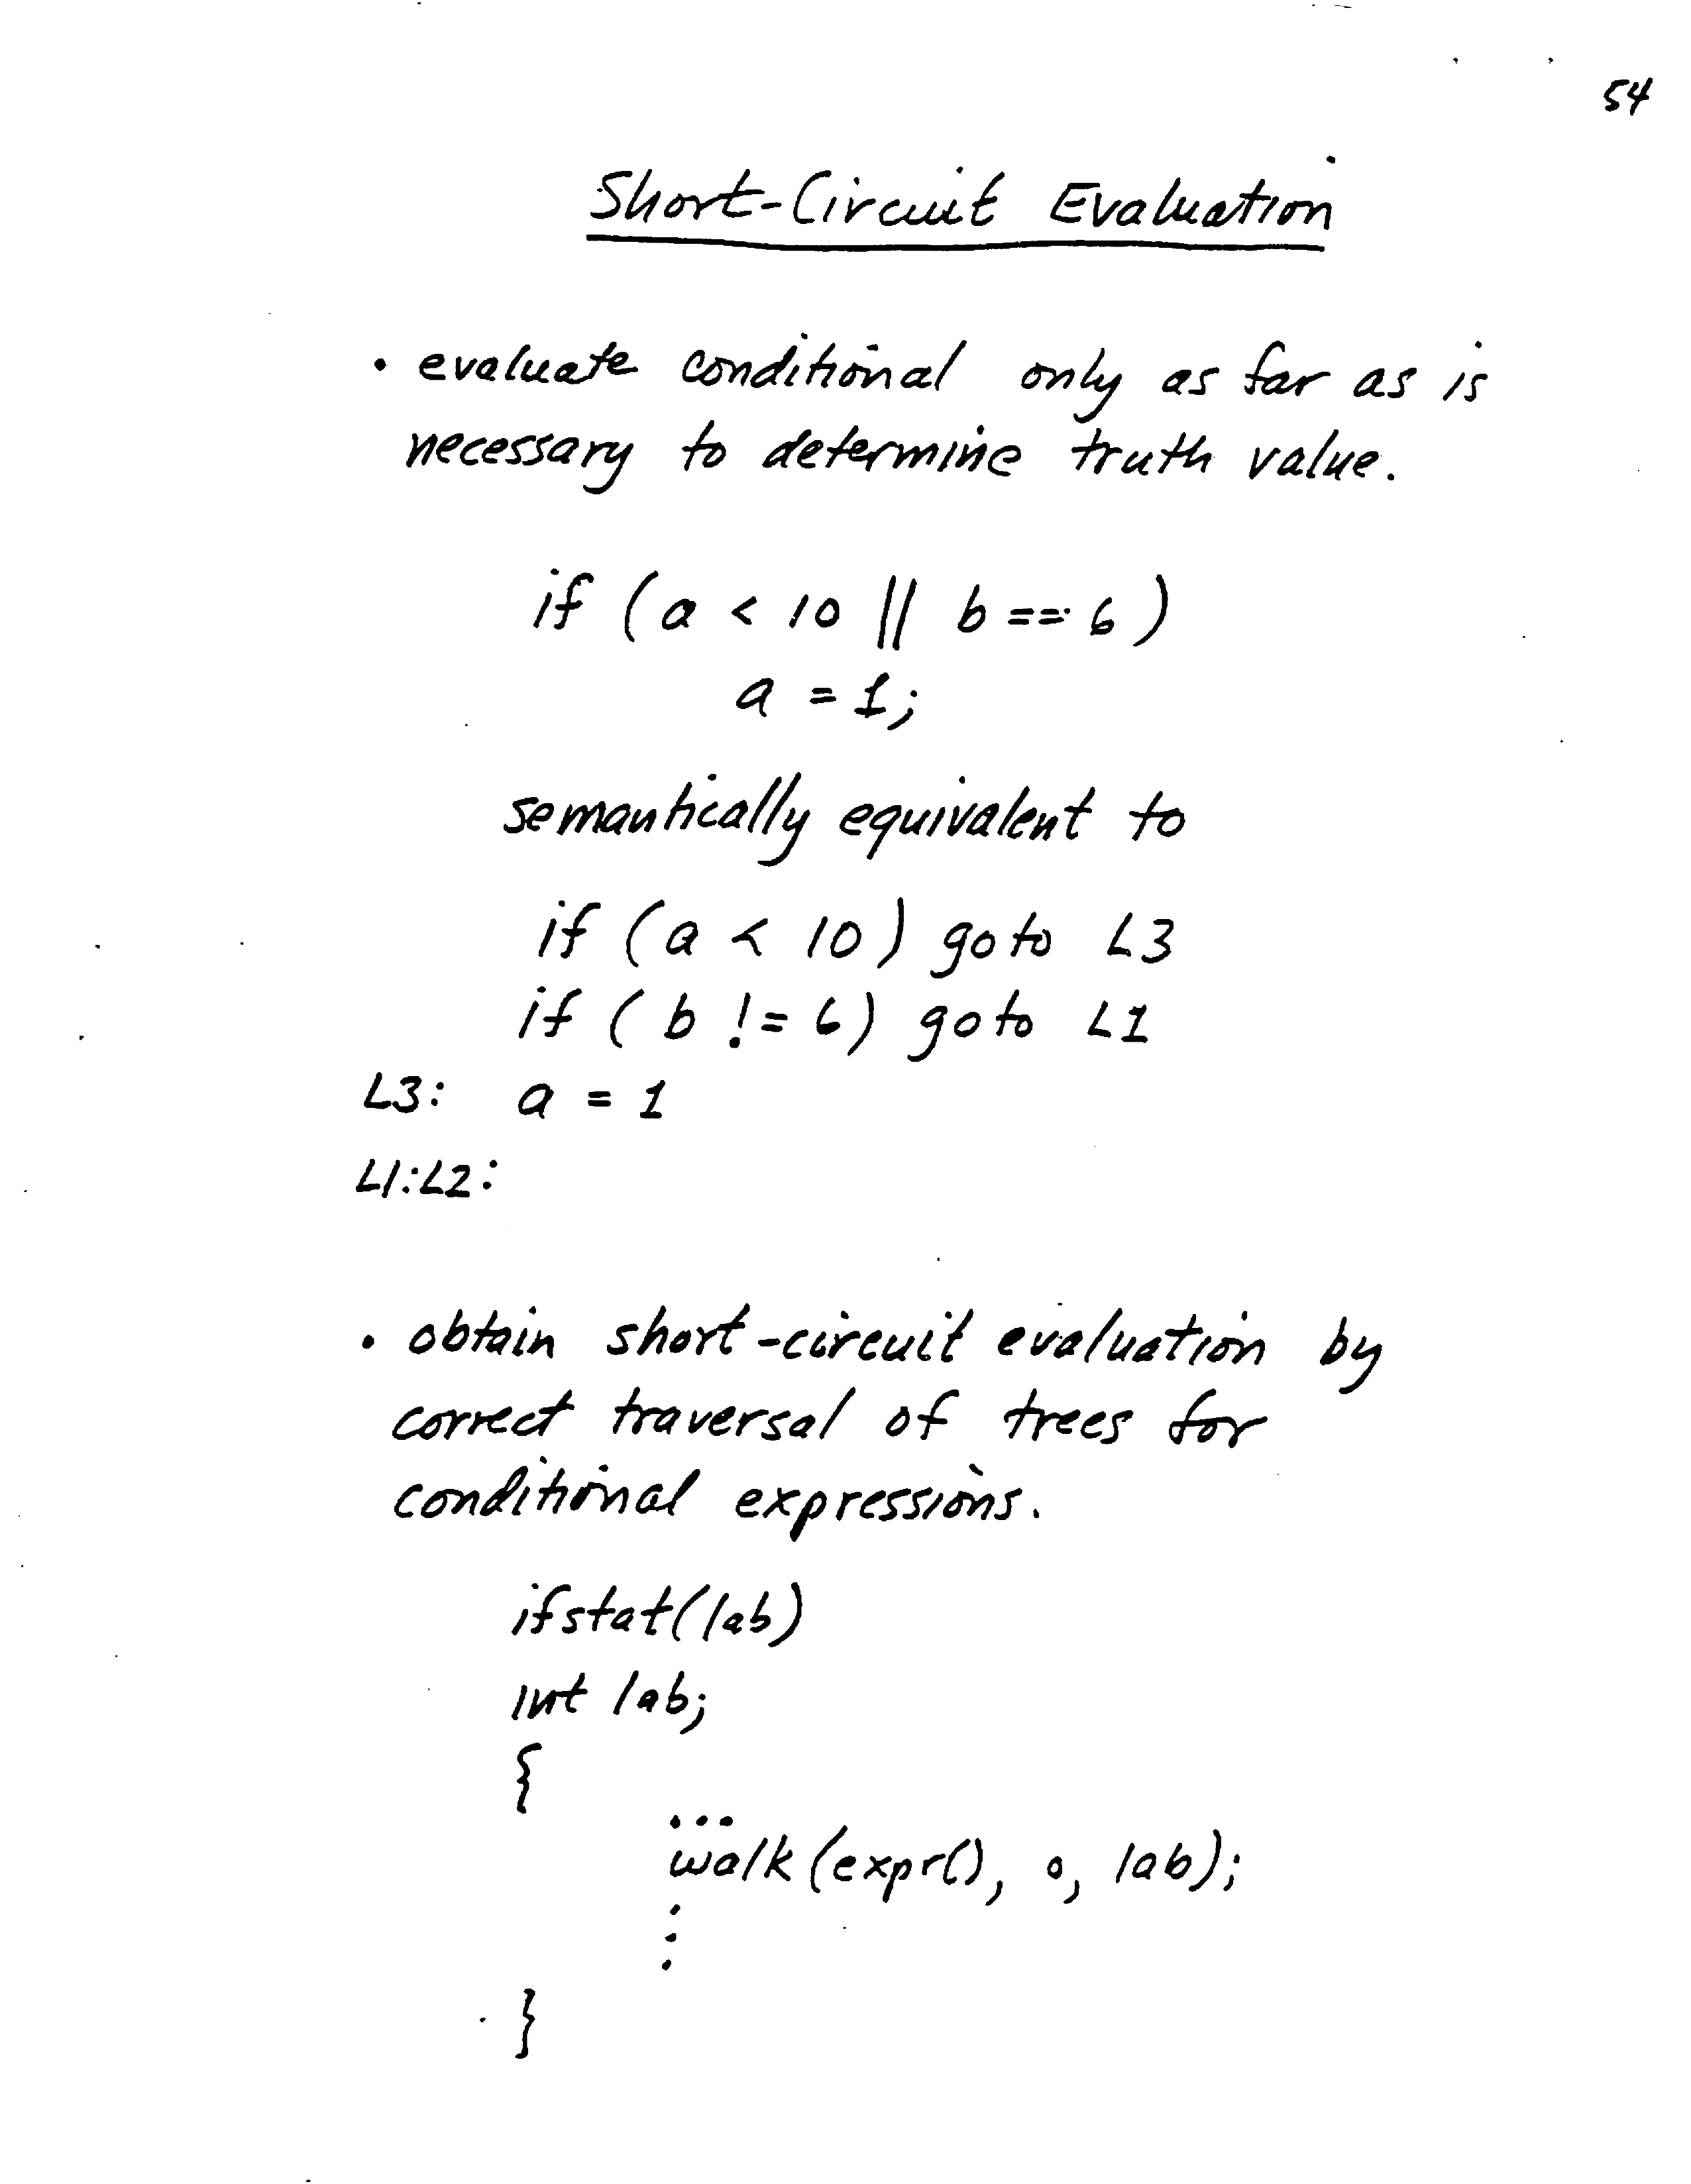 54
Short-Circuit Evaluation
• evaluate conditional only as far as is
necessary to determine truth value.
if (a < 10 || b == 6)
a = 1;
semantically equivalent to
if (a < 10) goto L3
if (b != 6) goto L1
L3: a = 1
L1:L2:
• obtain short-circuit evaluation by
correct traversal of trees for
conditional expressions.
ifstat(lab)
int lab;
{
...
walk(expr(), 0, lab);
⋮
}